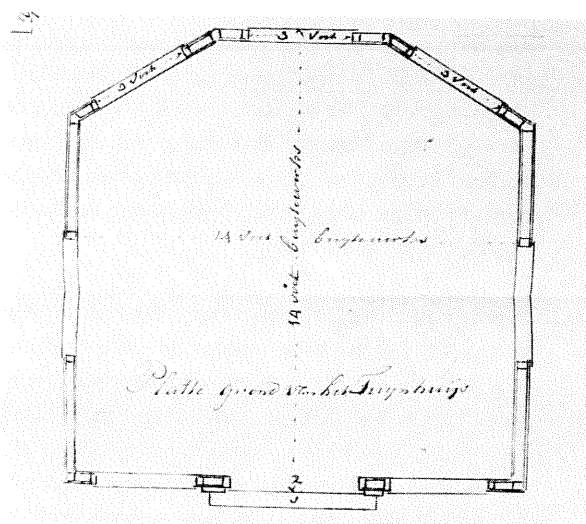 3 Voet
3 Voet
3 Voet
14 voet buytewerks
14 Voet buytewerks
Platte grond van het Tuynhuijs